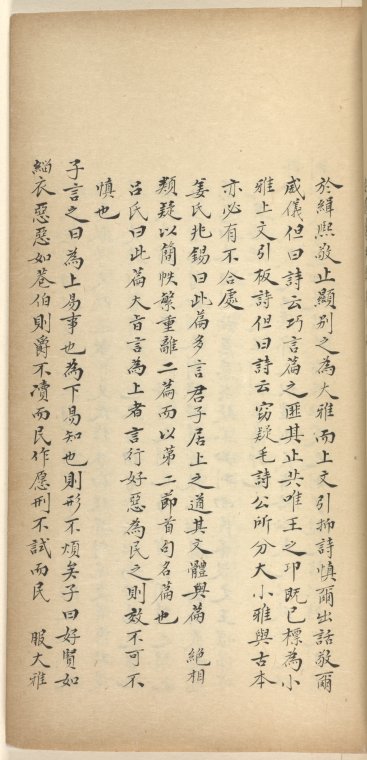 於緝熙敬止顯別之為大雅而上文引抑詩慎爾出話敬爾
威儀但曰詩云巧言篇之匪其止共唯王之邛既已標為小
雅上文引板詩但曰詩云竊疑毛詩公所分大小雅與古本
亦必有不合處
姜氏兆錫曰此篇多言君子居上之道其文體與篇 絕相
類疑以簡帙繁重離二篇而以第二節首句名篇也
呂氏曰此篇大旨言為上者言行好惡為民之則效不可不
慎也
子言之曰為上易事也為下易知也則形不煩矣子曰好賢如
緇衣惡惡如巷伯則爵不凟而民作愿刑不試而民 服大雅